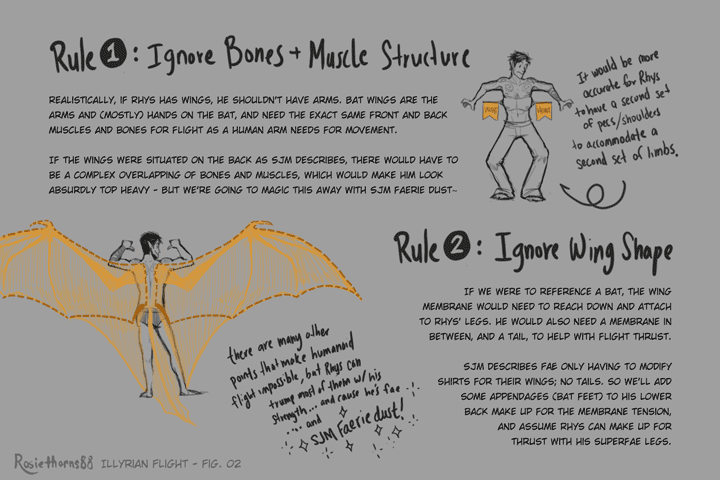 Rule 1: Ignore Bones + Muscle Structure
REALISTICALLY, IF RHYS HAS WINGS, HE SHOULDN'T HAVE ARMS. BAT WINGS ARE THE
ARMS AND (MOSTLY) HANDS ON THE BAT, AND NEED THE EXACT SAME FRONT AND BACK
MUSCLES AND BONES FOR FLIGHT AS A HUMAN ARM NEEDS FOR MOVEMENT.
IF THE WINGS WERE SITUATED ON THE BACK AS SJM DESCRIBES, THERE WOULD HAVE TO
BE A COMPLEX OVERLAPPING OF BONES AND MUSCLES, WHICH WOULD MAKE HIM LOOK
ABSURDLY TOP HEAVY - BUT WE'RE GOING TO MAGIC THIS AWAY WITH SJM FAERIE DUST~
It would be more
accurate for Rhys
to have a second set
of pecs/shoulders
to accommodate a
second set of limbs.
Rule 2: Ignore Wing Shape
IF WE WERE TO REFERENCE A BAT, THE WING
MEMBRANE WOULD NEED TO REACH DOWN AND ATTACH
TO RHYS' LEGS. HE WOULD ALSO NEED A MEMBRANE IN
BETWEEN, AND A TAIL, TO HELP WITH FLIGHT THRUST.
SJM DESCRIBES FAE ONLY HAVING TO MODIFY
SHIRTS FOR THEIR WINGS; NO TAILS. SO WE'LL ADD
SOME APPENDAGES (BAT FEET) TO HIS LOWER
BACK MAKE UP FOR THE MEMBRANE TENSION,
AND ASSUME RHYS CAN MAKE UP FOR
THRUST WITH HIS SUPERFAE LEGS.
there are many other
points that make humanoid
flight impossible, but Rhys can
trump most of them w/ his
strength... and cause he's fae
... and
SJM Faerie dust!
Rosiethorns88 ILLYRIAN FLIGHT - FIG. 02